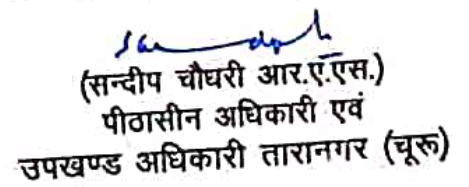 (सन्दीप चौधरी आर.ए.एस.)
पीठासीन अधिकारी एवं
उपखण्ड अधिकारी तारानगर (चूरू)